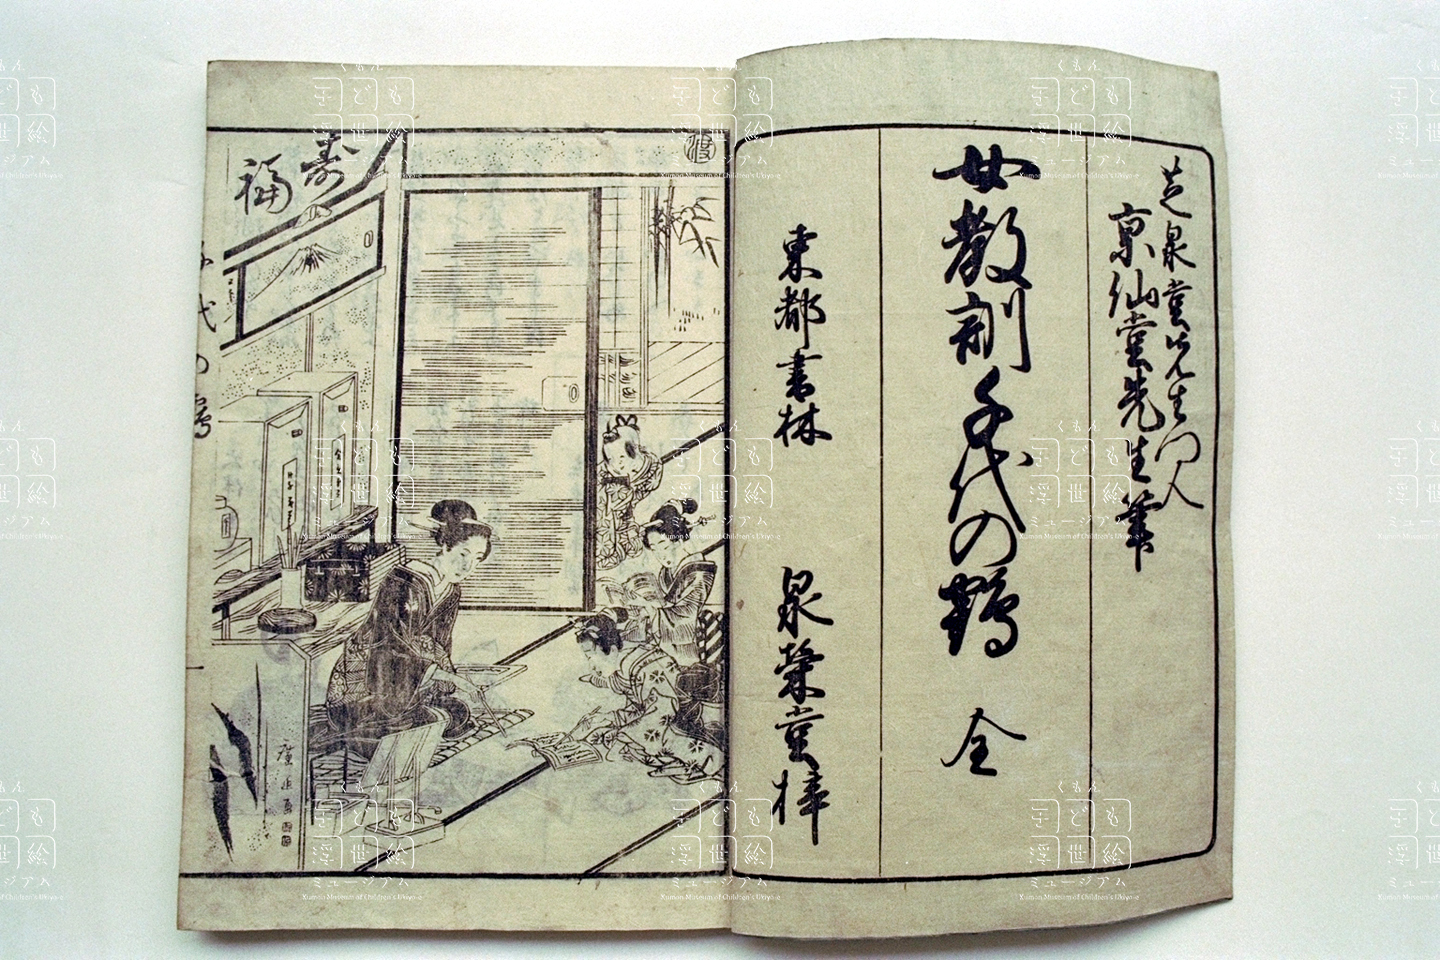 芝泉堂先生門人
泉仙堂先生筆
女教訓千代の鶴 全
東都書林 泉榮堂梓
寿
福
代の鶴
くもん
子ども
浮世絵
ミュージアム
Kumon Museum of Children's Ukiyo-e